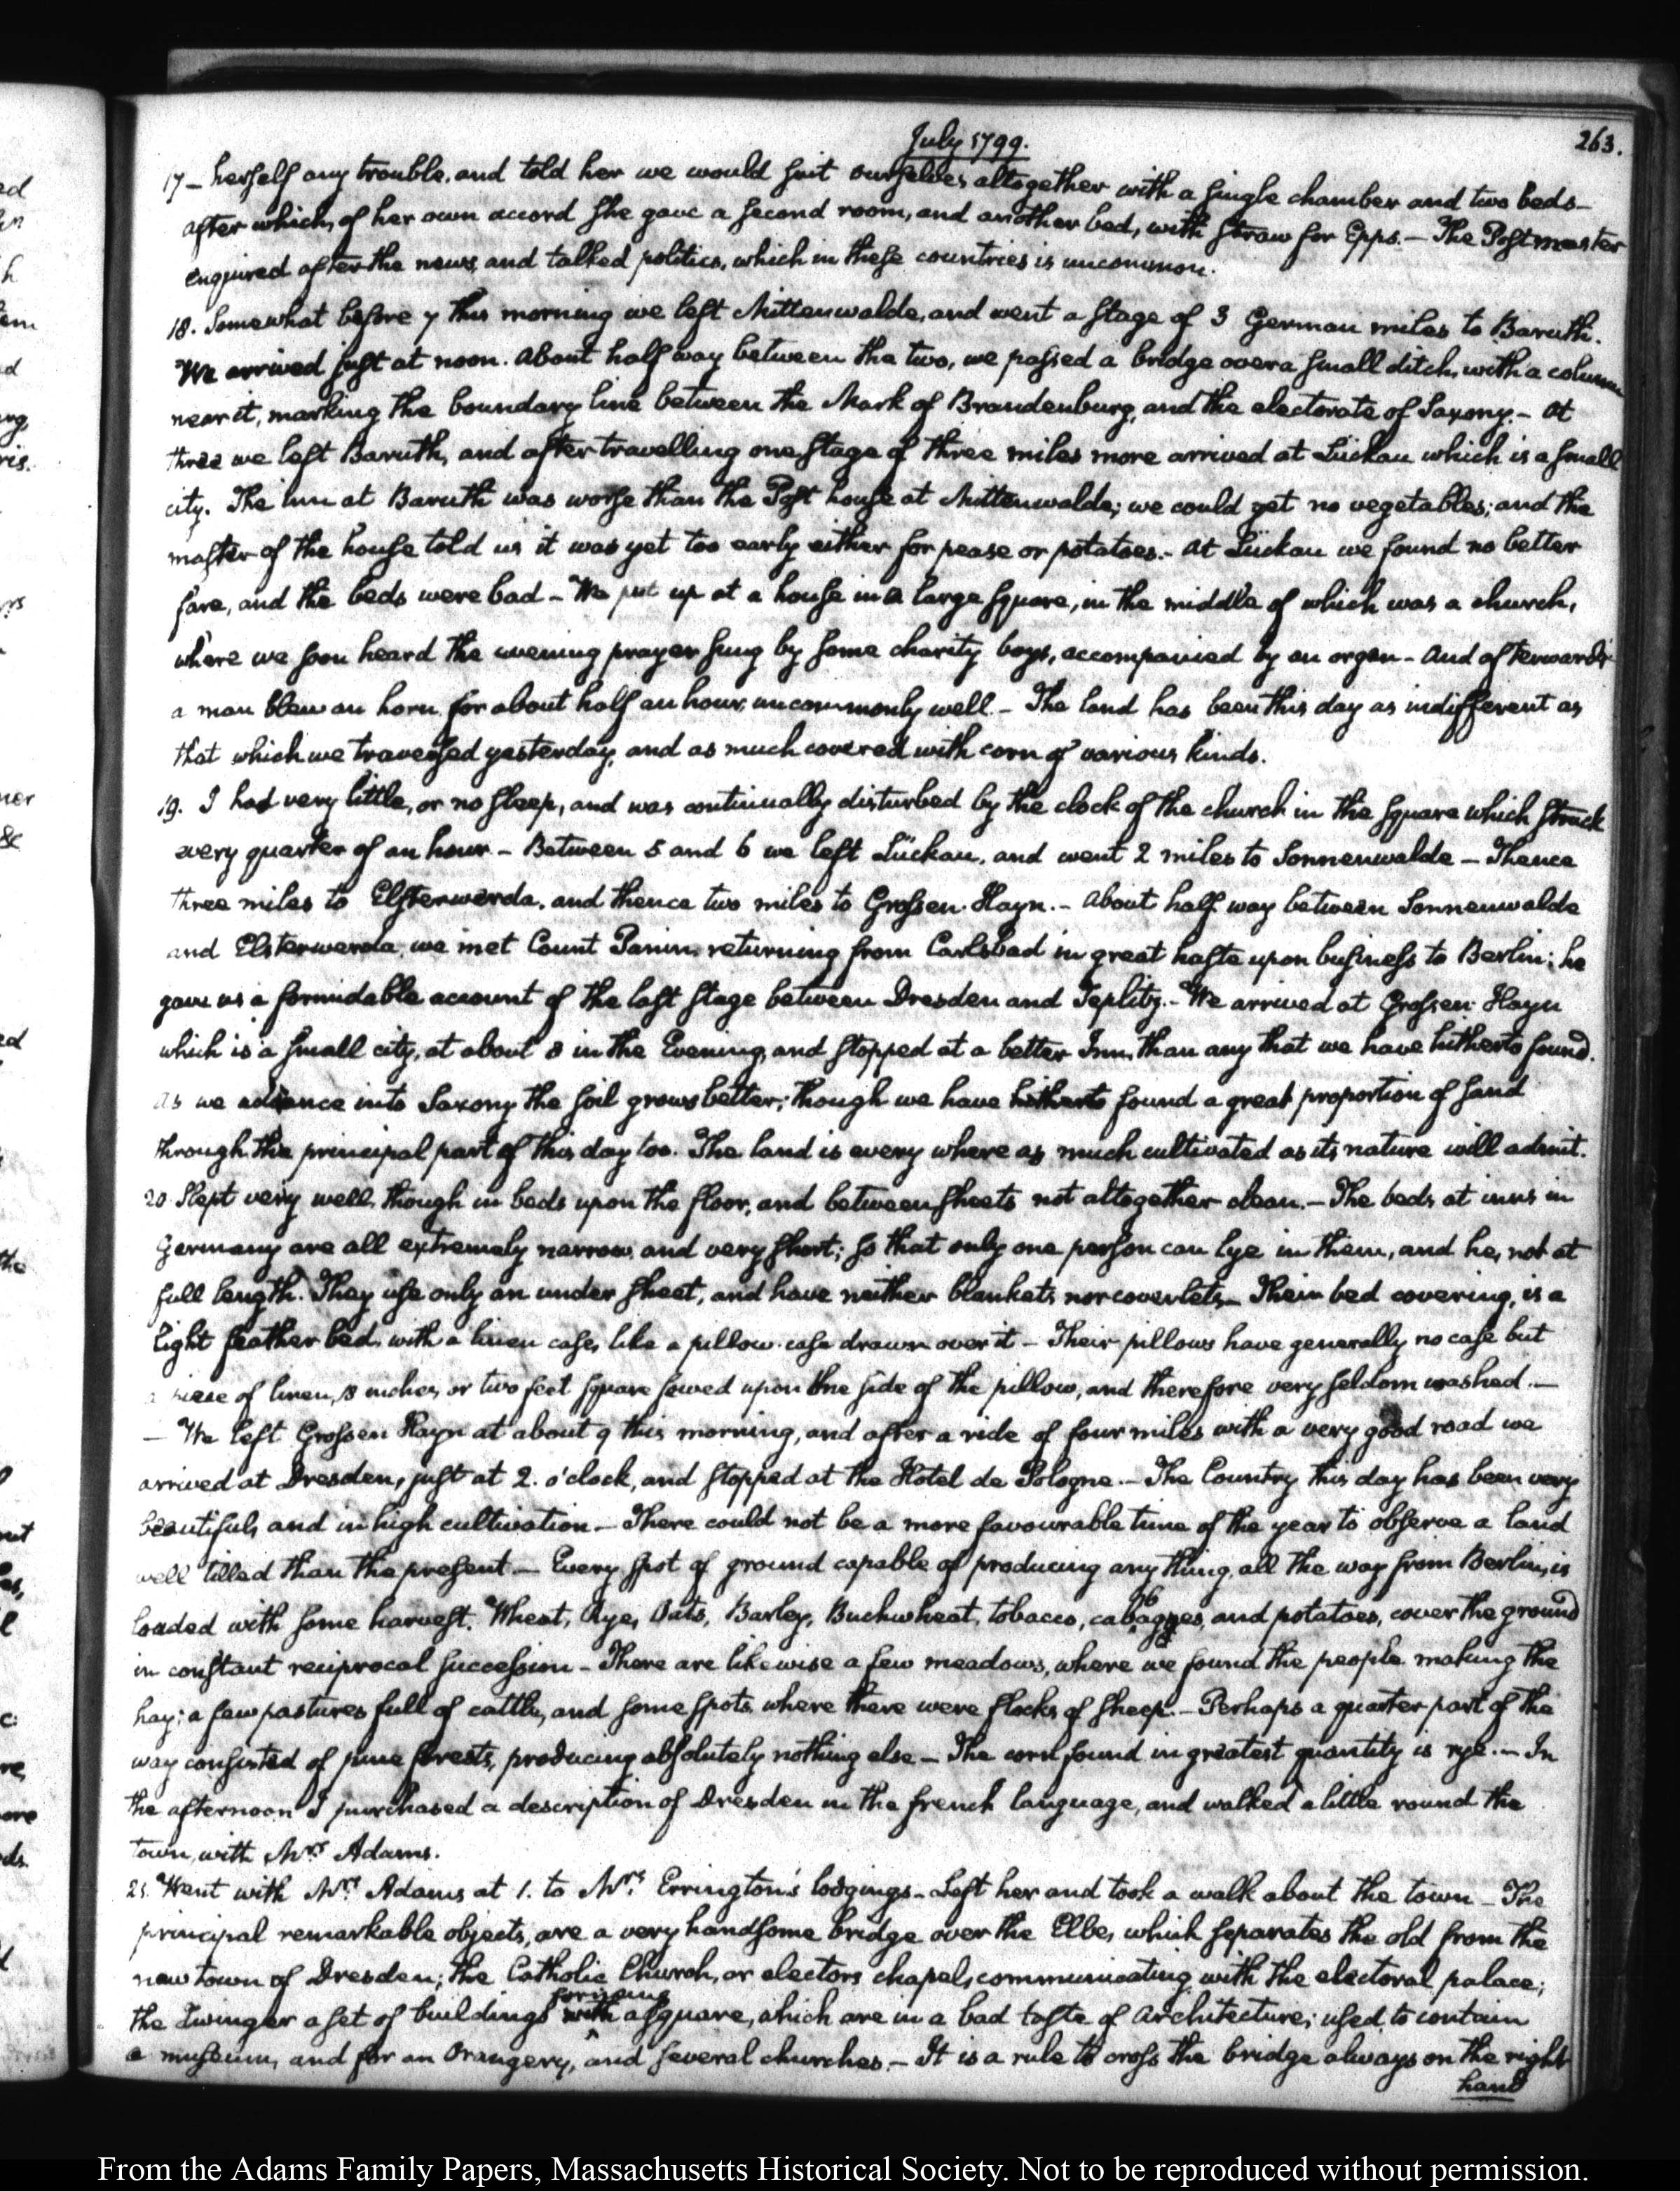 July 1799.
263.
17 – herself any trouble, and told her we would suit ourselves altogether with a single chamber and two beds –
after which, of her own accord she gave a second room, and another bed, with straw for Epps. – The Postmaster
enquired after the news, and talked politics, which in these countries is uncommon.
18. Somewhat before 7 this morning we left Mittenwalde, and went a stage of 3 German miles to Baruth.
We arrived just at noon. About half way between the two, we passed a bridge over a small ditch, with a column
near it, marking the boundary line between the Mark of Brandenburg, and the electorate of Saxony. – At
three we left Baruth, and after travelling one stage of three miles more arrived at Lückau which is a small
city. The inn at Baruth was worse than the Post house at Mittenwalde; we could get no vegetables; and the
master of the house told us it was yet too early either for pease or potatoes. – At Lückau we found no better
fare, and the beds were bad – We put up at a house in a large square, in the middle of which was a church,
where we soon heard the evening prayer sung by some charity boys, accompanied by an organ – And afterwards
a man blew an horn for about half an hour, uncommonly well. – The land has been this day as indifferent as
that which we traversed yesterday, and as much covered with corn of various kinds.
19. I had very little, or no sleep, and was continually disturbed by the clock of the church in the square which struck
every quarter of an hour – Between 5 and 6 we left Lückau, and went 2 miles to Sonnenwalde – Thence
three miles to Elsterwerda, and thence two miles to Grossen Hayn. – About half way between Sonnenwalde
and Elsterwerda, we met Count Panin, returning from Carlsbad in great haste upon business to Berlin; he
gave us a formidable account of the last stage between Dresden and Teplitz. – We arrived at Grossen Hayn
which is a small city, at about 8 in the Evening, and stopped at a better Inn, than any that we have hitherto found.
As we advance into Saxony the soil grows better; though we have hitherto found a great proportion of sand
through the principal part of this day too. The land is every where as much cultivated as its nature will admit.
20 Slept very well, though in beds upon the floor, and between sheets not altogether clean. – The beds at inns in
Germany are all extremely narrow, and very short; so that only one person can lye in them, and he, not at
full length. They use only an under sheet, and have neither blankets nor coverlets – Their bed covering, is a
light feather bed, with a linen case, like a pillow-case drawn over it – Their pillows have generally no case but
a piece of linen, 18 inches, or two feet square sewed upon one side of the pillow, and therefore very seldom washed. –
– We left Grossen Hayn at about 9 this morning, and after a ride of four miles with a very good road we
arrived at Dresden, just at 2. o'clock, and stopped at the Hotel de Pologne. – The Country this day has been very
beautiful, and in high cultivation – There could not be a more favourable time of the year to observe a land
well tilled than the present – Every spot of ground capable of producing any thing, all the way from Berlin, is
loaded with some harvest. Wheat, Rye, Oats, Barley, Buckwheat, tobacco, cabbages, and potatoes, cover the ground
in constant reciprocal succession – There are likewise a few meadows, where we found the people making the
hay; a few pastures full of cattle, and some spots where there were flocks of sheep. – Perhaps a quarter part of the
way consisted of pine forests, producing absolutely nothing else – The corn found in greatest quantity is rye. – In
the afternoon I purchased a description of Dresden in the french language, and walked a little round the
town, with Mrs. Adams.
21. Went with Mrs. Adams at 1. to Mrs. Errington's lodgings – Left her and took a walk about the town – The
principal remarkable objects, are a very handsome bridge over the Elbe, which separates the old from the
new town of Dresden; the Catholic Church, or electors chapel, communicating with the electoral palace;
the Zwinger a set of buildings forming a square, which are in a bad taste of Architecture; used to contain
a museum, and for an Orangery, and several churches. – It is a rule to cross the bridge always on the right
hand
From the Adams Family Papers, Massachusetts Historical Society. Not to be reproduced without permission.